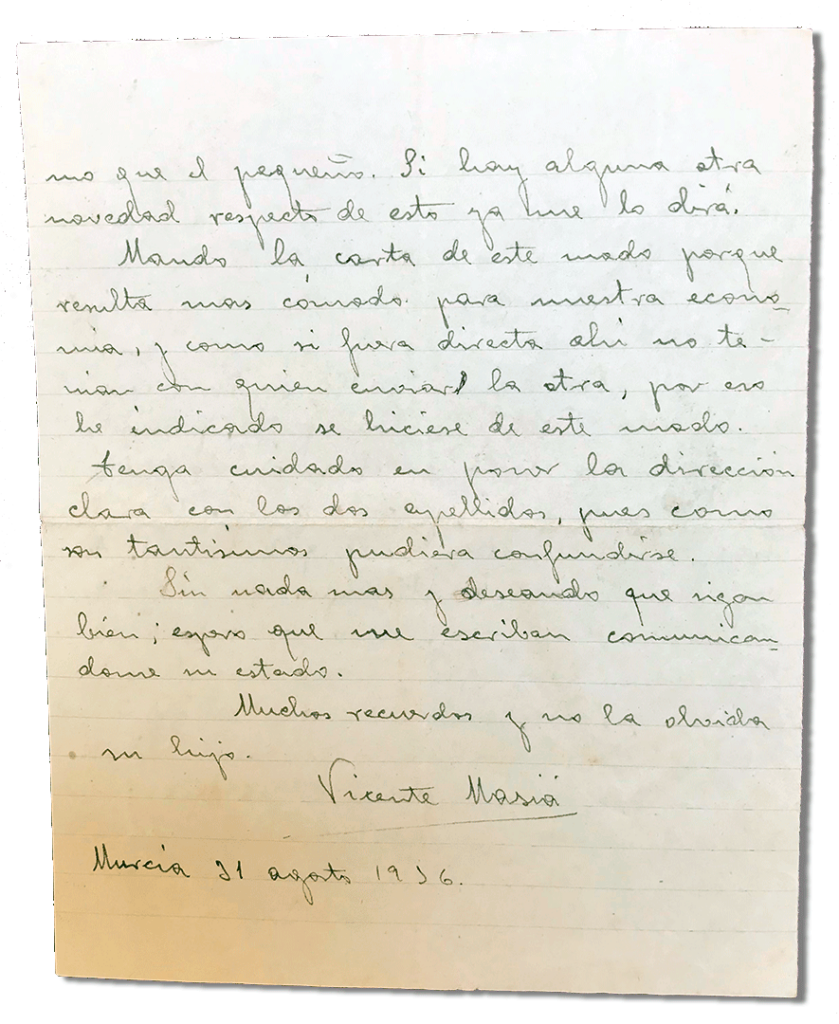 mo que el pequeño. Si hay alguna otra
novedad respecto de esto ya me lo dirá.
Mando la carta de este modo porque
resulta mas cómodo para nuestra econo-
mia, y como si fuera directa ahi no te-
nian con quien enviar la otra, por eso
he indicado se hiciese de este modo.
tenga cuidado en poner la dirección
clara con los dos apellidos, pues como
son tantísimos pudiera confundirse.
Sin nada mas y deseando que sigan
bien; espero que me escriban comunican-
dome su estado.
Muchos recuerdos y no la olvida
su hijo.
Vicente Masiá
Murcia 31 agosto 1936.